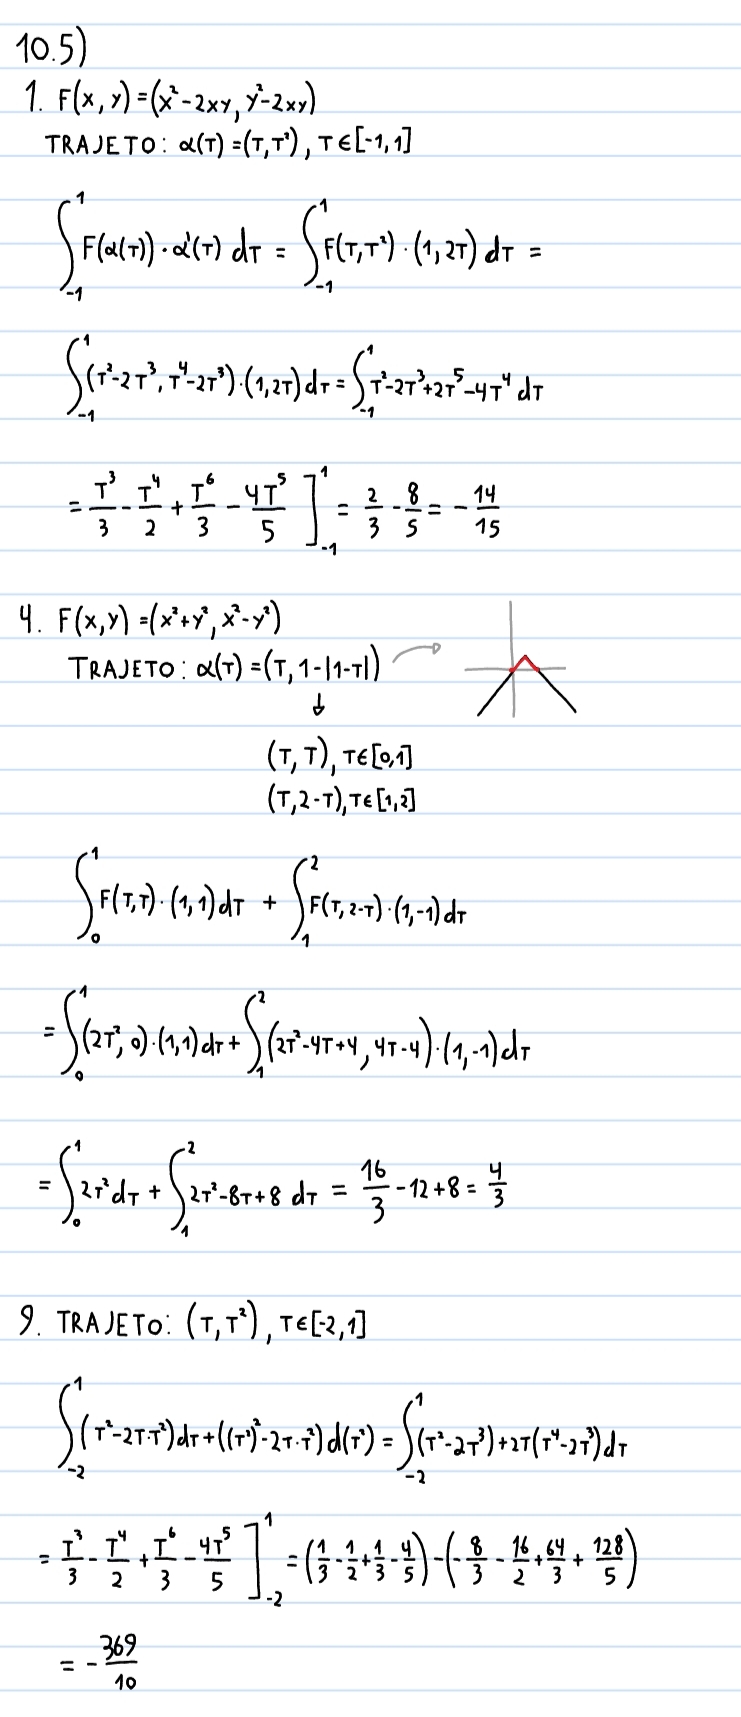 10.5)
1. F(x, y) = (x²-2xy, y²-2xy)
TRAJETO: α(T) = (T, T²), T∈[-1,1]
∫₋₁¹ F(α(T)) · α'(T) dT = ∫₋₁¹ F(T,T²) · (1, 2T) dT =
∫₋₁¹ (T²-2T³, T⁴-2T³) · (1, 2T) dT = ∫₋₁¹ T²-2T³+2T⁵-4T⁴ dT
= T³/3 - T⁴/2 + T⁶/3 - 4T⁵/5 ]₋₁¹ = 2/3 - 8/5 = - 14/15
4. F(x,y) = (x²+y², x²-y²)
TRAJETO: α(T) = (T, 1-|1-T|)
↓
(T, T), T∈[0,1]
(T, 2-T), T∈[1,2]
∫₀¹ F(T,T) · (1,1) dT + ∫₁² F(T, 2-T) · (1,-1) dT
= ∫₀¹ (2T², 0) · (1,1) dT + ∫₁² (2T²-4T+4, 4T-4) · (1,-1) dT
= ∫₀¹ 2T² dT + ∫₁² 2T²-8T+8 dT = 16/3 - 12 + 8 = 4/3
9. TRAJETO: (T, T²), T∈[-2,1]
∫₋₂¹ (T²-2T·T²) dT + ((T²)²-2T·T²) d(T²) = ∫₋₂¹ (T²-2T³) + 2T(T⁴-2T³) dT
= T³/3 - T⁴/2 + T⁶/3 - 4T⁵/5 ]₋₂¹ = (1/3 - 1/2 + 1/3 - 4/5) - (-8/3 - 16/2 + 64/3 + 128/5)
= - 369/10